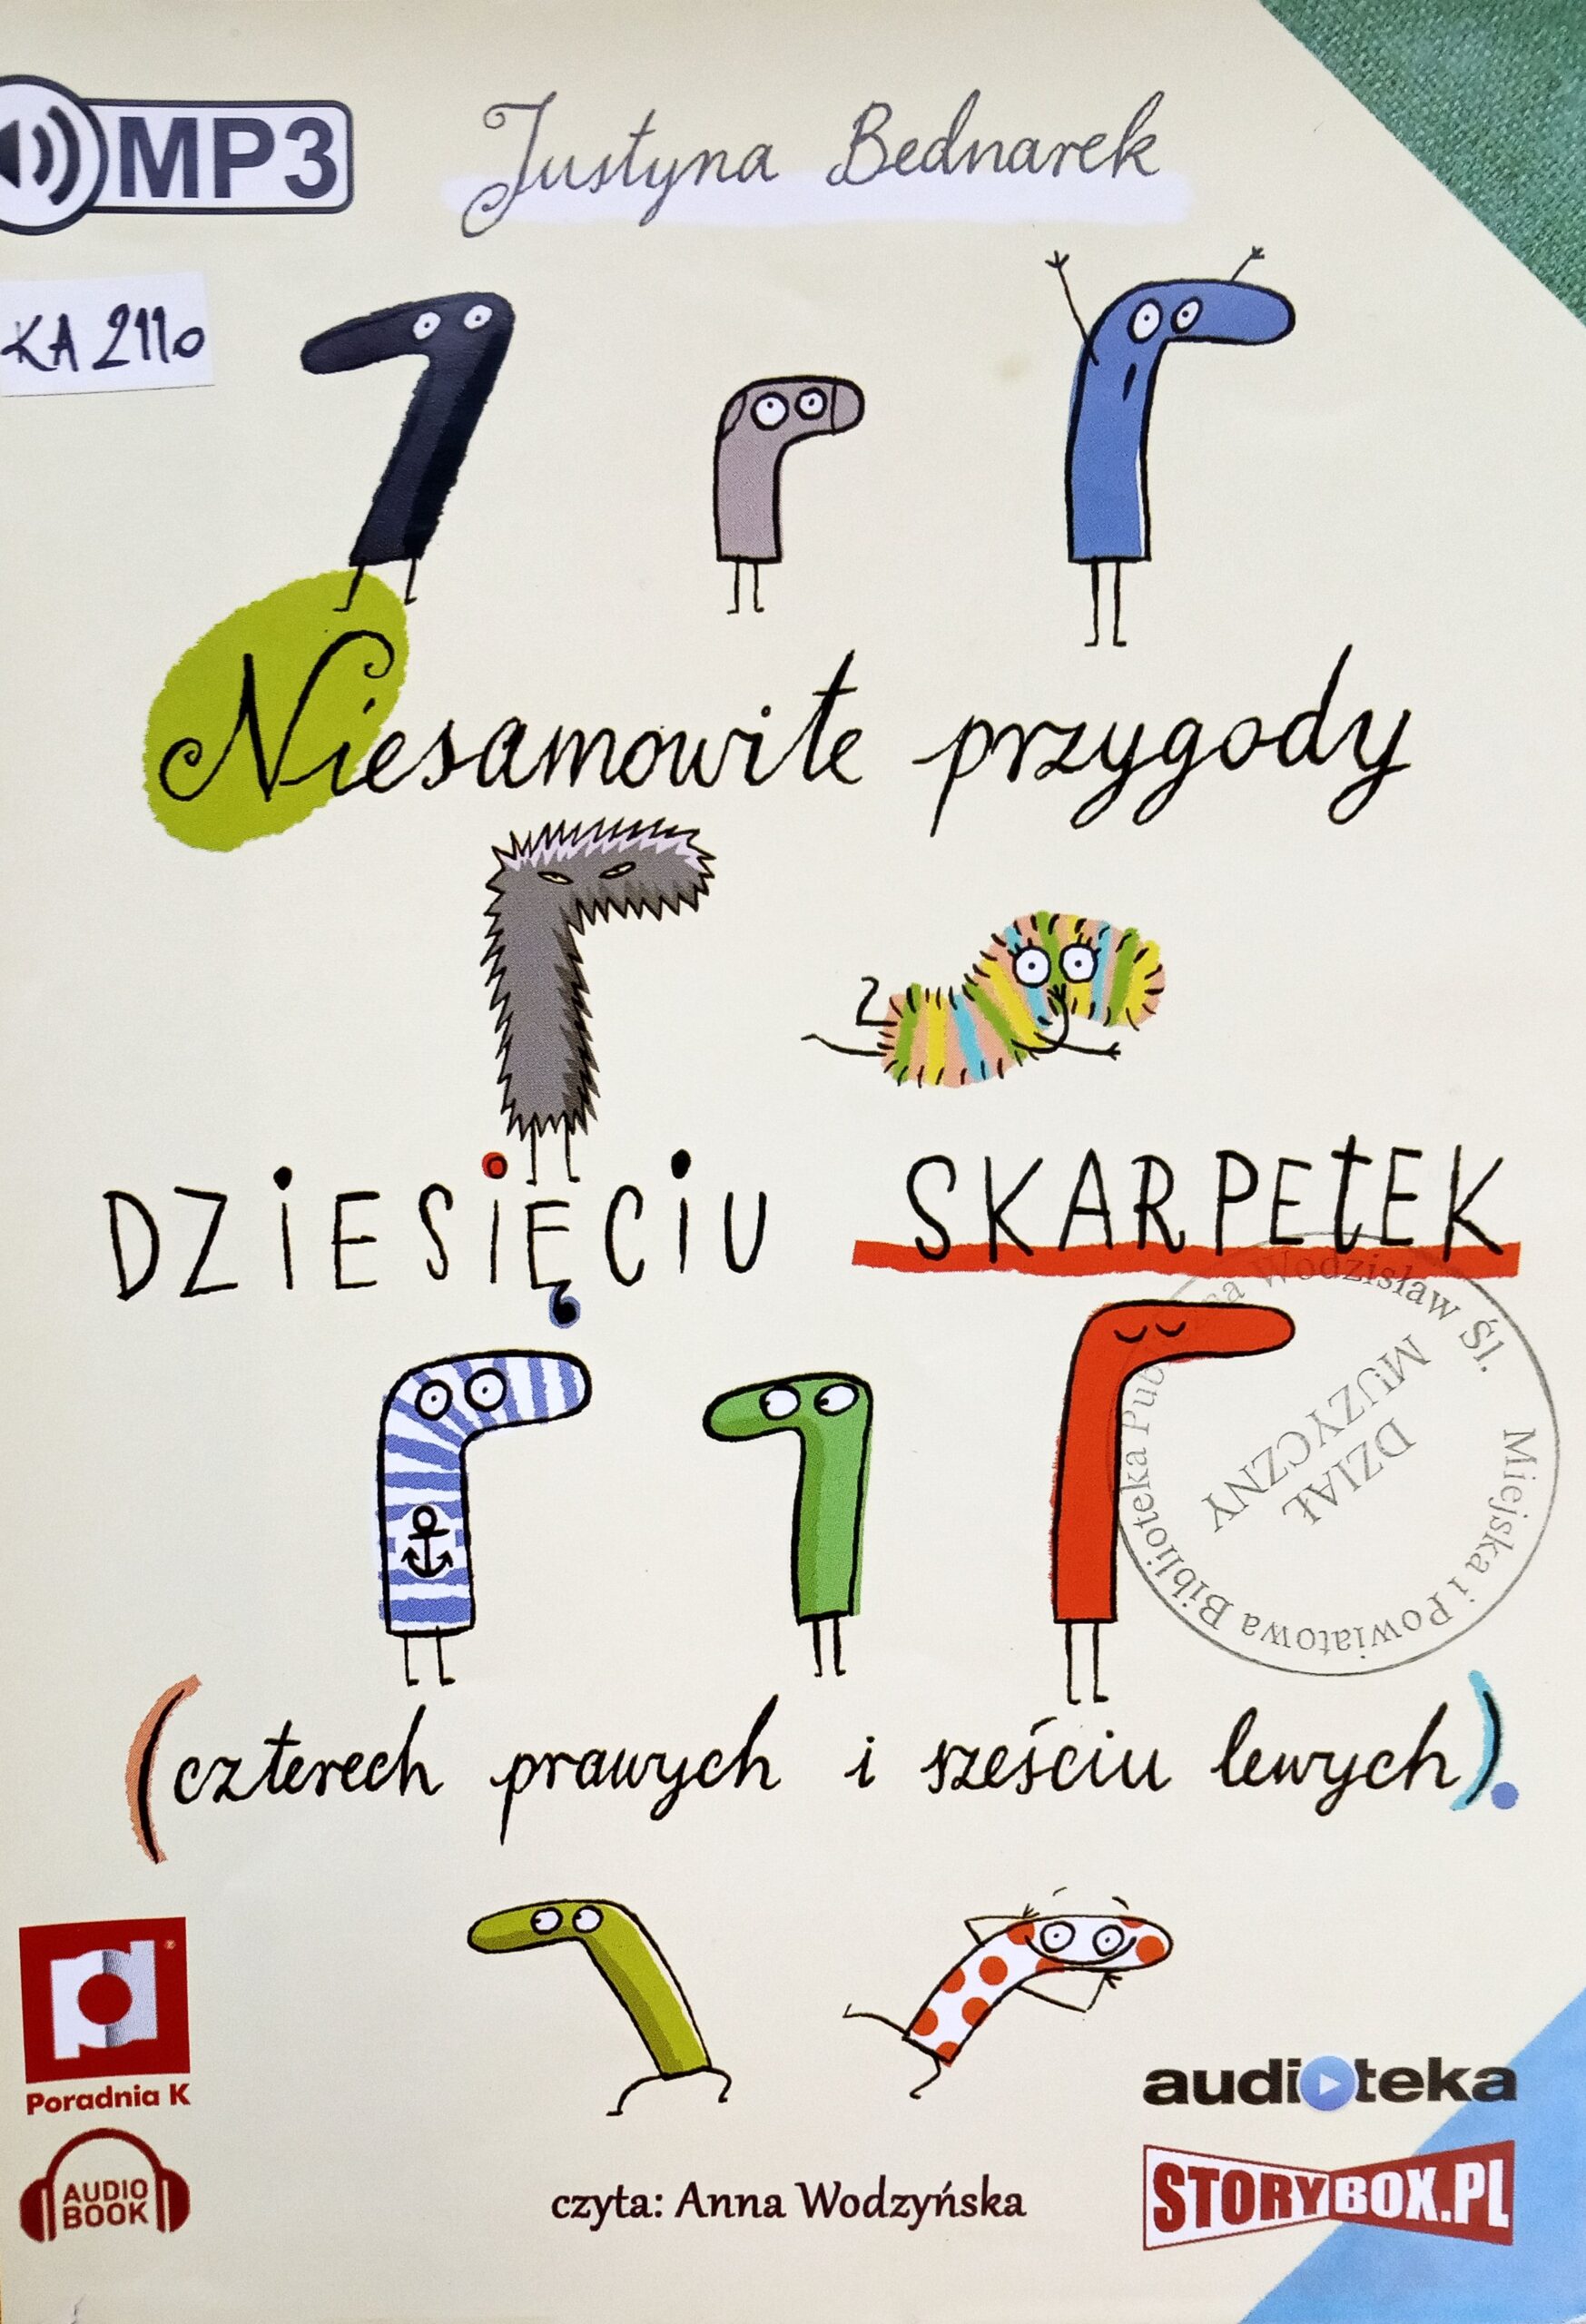 MP3
Justyna Bednarek
KA 2110
Niesamowite przygody
DZIESIĘCIU SKARPETEK
Miejska i Powiatowa Biblioteka Publiczna Wodzisław Śl.
DZIAŁ
MUZYCZNY
(czterech prawych i sześciu lewych).
Poradnia K
audioteka
AUDIO
BOOK
czyta: Anna Wodzyńska
STORYBOX.PL